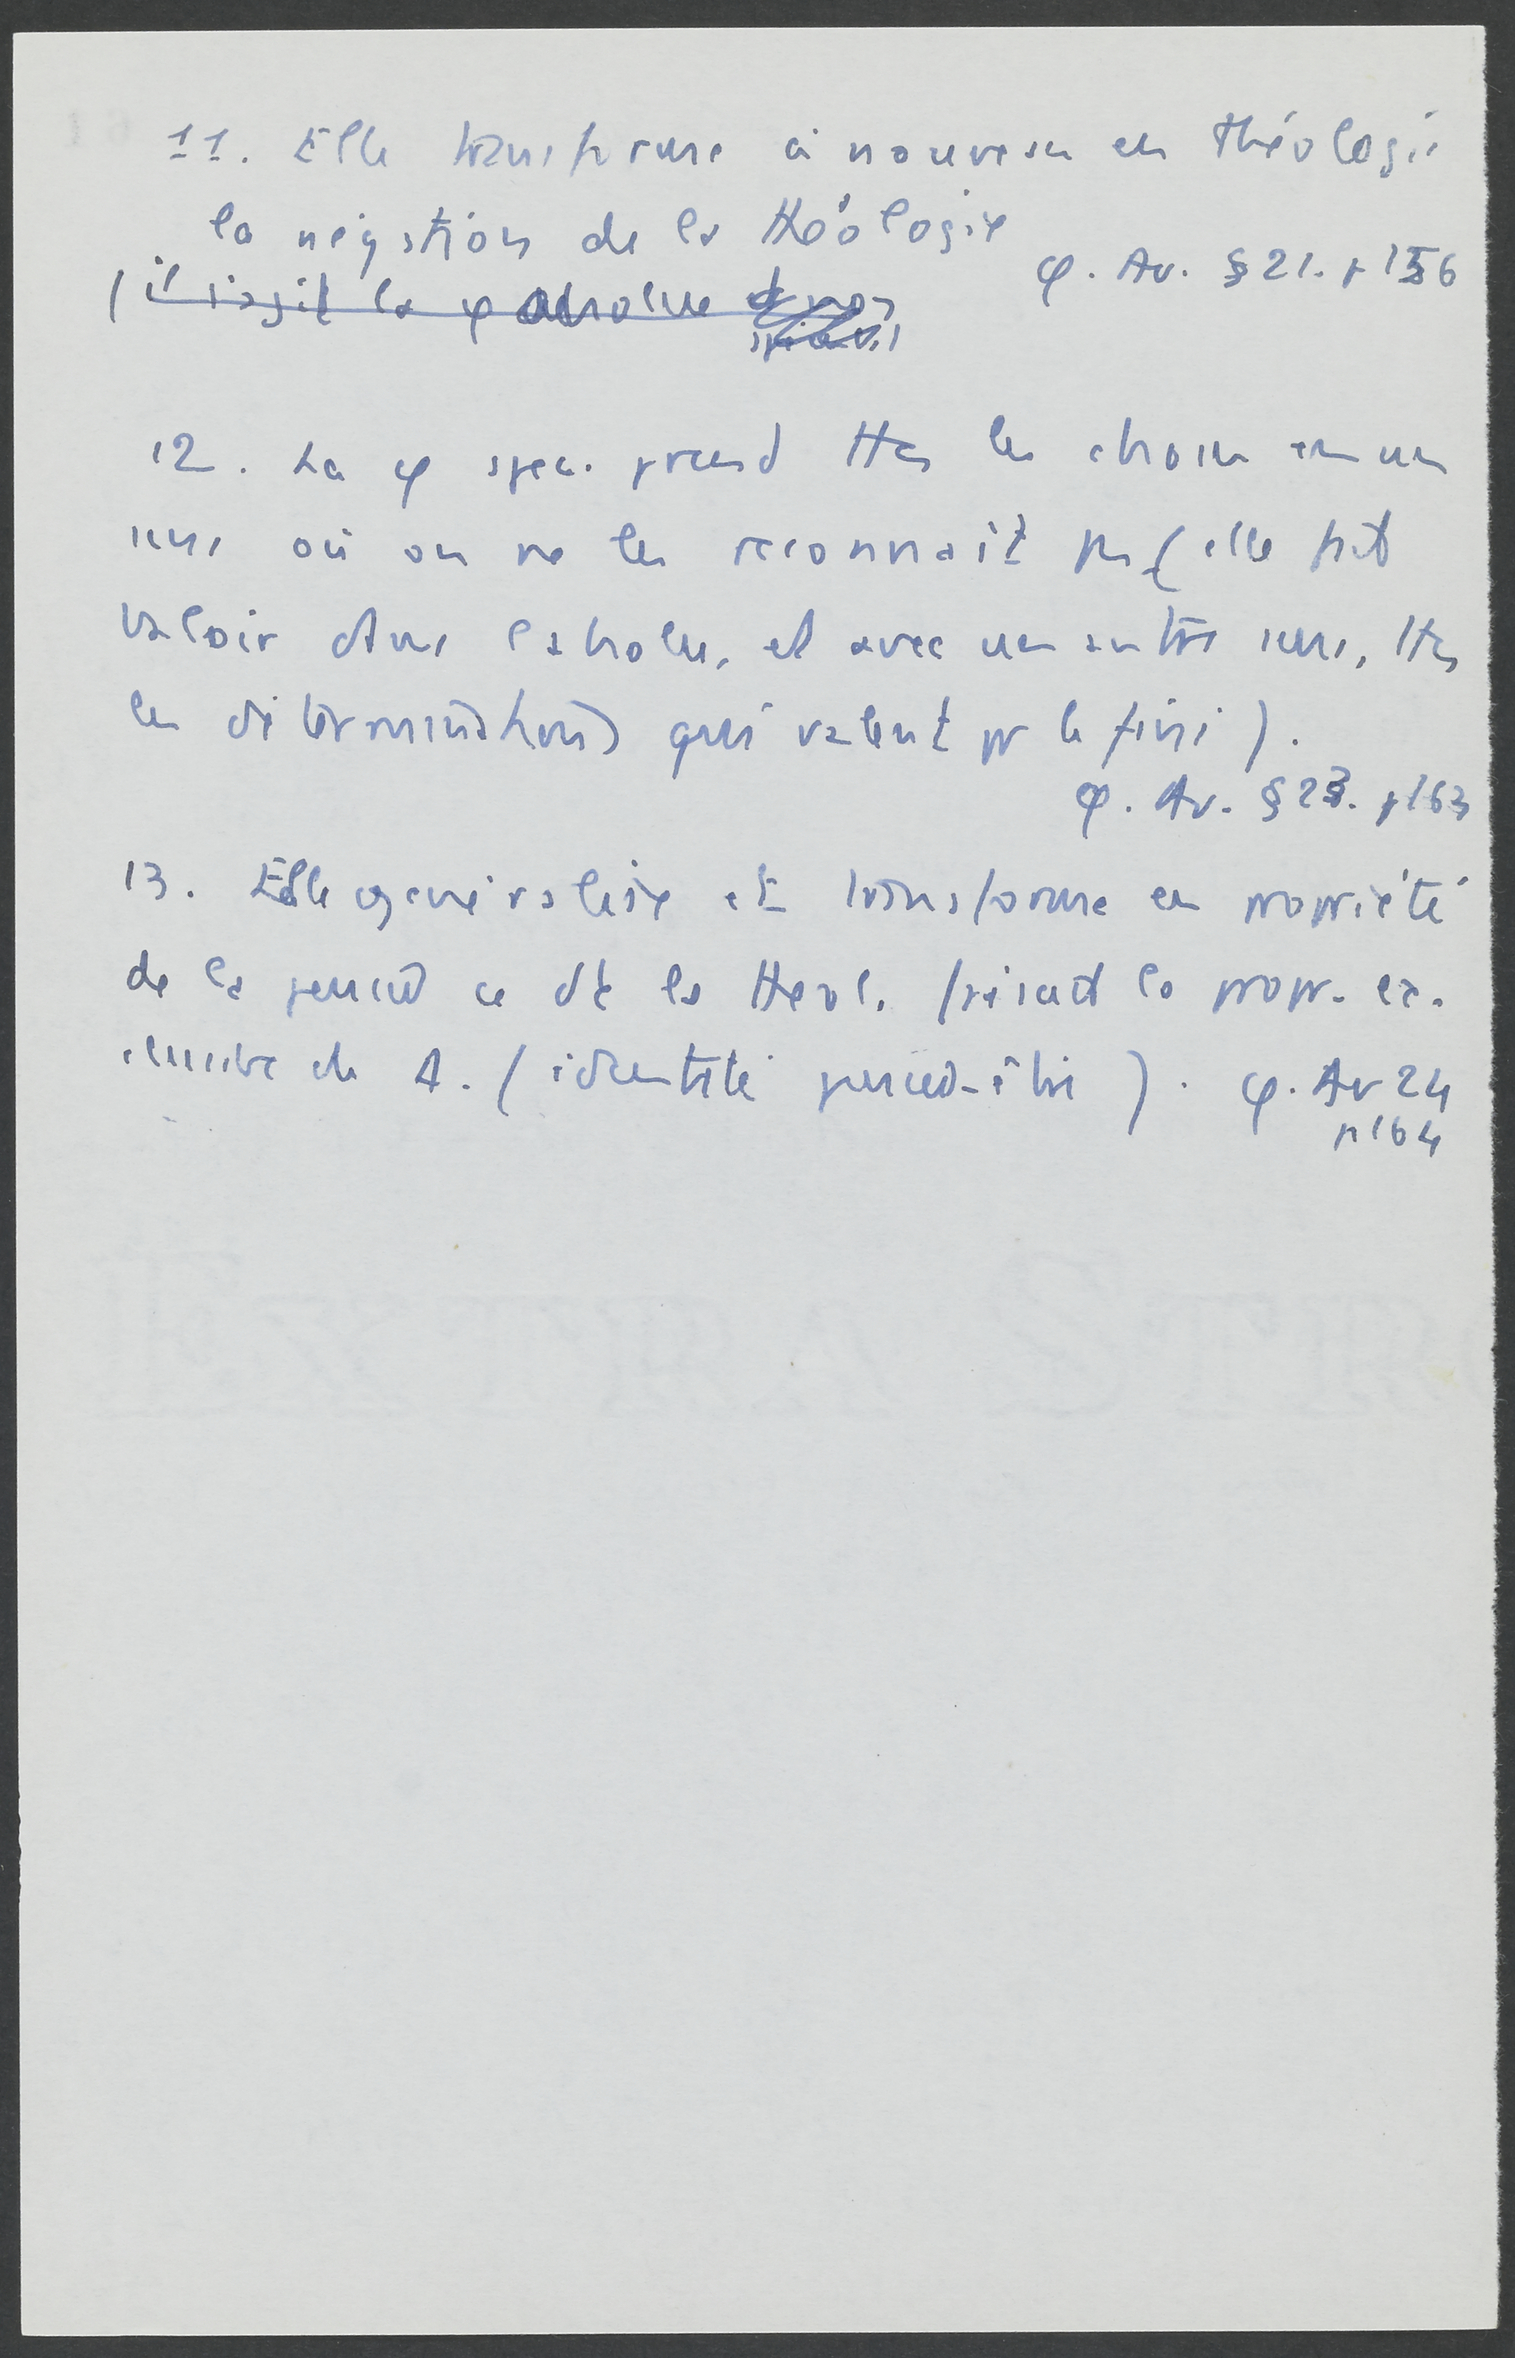 11. Elle transforme à nouveau en théologie
la négation de la théologie
φ. Av. § 21. p 156
(il s'agit la φ absolue
12. La φ spec. prend ttes les choses en un
sens où on ne les reconnait pas (elle fait
valoir dans l'absolu, et avec un autre sens, ttes
les déterminations qui valent pr le fini).
φ. Av. § 23. p 163
13. Elle généralise et transforme en propriété
de la pensée ce dt la theol. faisait la propr. ex.
clusive de A. (identité pensée-être). φ. Av 24
p 164